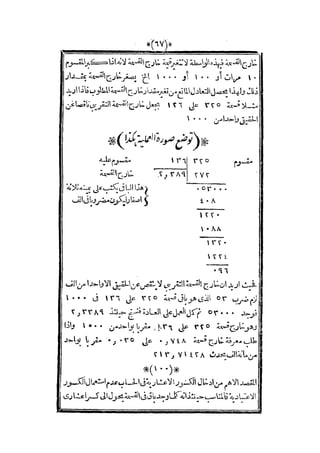 *(٦٧)*
خارج القسمة فبهذه الواسطة لا تتغير قيمة خارج القسمة لانه اذا كبر المقسوم
١٠ مرات أو ١٠٠ أو ١٠٠٠ الخ يصغر خارج القسمة بمقدار
ذلك وبهذا يحصل التعادل المانع من تغير مقدار خارج القسمة المطلوب فاذا اريد
مثلا قسمة ٣٢٥ على ١٣٦ يجعل خارج القسمة التقريبي ناقصا عن
الحقيقي واحدا من ١٠٠٠
*(توضع صورة العملية هكذا)*
مقسوم ٣٢٥ ١٣٦ مقسوم عليه
٢٧٢ ٢,٣٨٩ خارج القسمة
٠٥٣٠٠٠ هذا الباقي يكتب على يمينه ثلاثة
٤٠٨ اصفار ليكون مضروبا في الف
١٢٢٠
١٠٨٨
١٣٢٠
١٢٢٤
٠٩٦
فحيث اريد ان خارج القسمة التقريبي لا ينقص عن الحقيقي الا واحدا من الف
لزم ضرب ٥٣ الذي هو باقي قسمة ٣٢٥ على ١٣٦ في ١٠٠٠
فيوجد ٥٣٠٠٠ ثم كمل العمل على العادة فنتج حينئذ ٢,٣٣٨٩
وهو خارج قسمة ٣٢٥ على ١٣٦ مقربا بواحد من ١٠٠٠ واذا
طلب معرفة خارج قسمة ٠,٧٤٨ على ٠,٠٣٥ مقربا بواحد
من مائة الف يحدث ٢١٣,٧١٤٢٨
*(١٠٠)*
المقصد الاهم من ادخال الكسور الاعشارية في الحساب عدم استعمال الكسور
الاعتيادية فالمناسب حينئذ انه كلما وجد باق في القسمة يحول الى كسر اعشاري